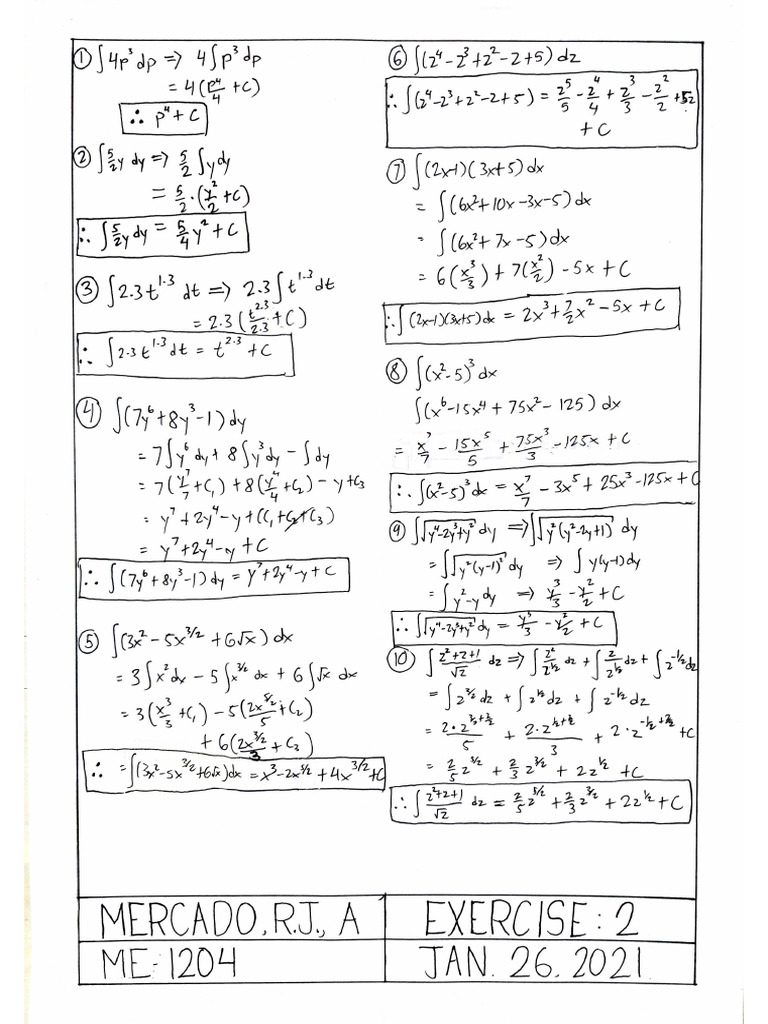 ① ∫4p³dp => 4∫p³dp
= 4(p⁴/4 + C)
∴ p⁴ + C
② ∫5/2 y dy => 5/2 ∫ydy
= 5/2 · (y²/2 + C)
∴ ∫5/2 y dy = 5/4 y² + C
③ ∫2.3t^1.3 dt => 2.3∫t^1.3 dt
= 2.3(t^2.3/2.3 + C)
∴ ∫2.3t^1.3 dt = t^2.3 + C
④ ∫(7y⁶+8y³-1)dy
= 7∫y⁶dy + 8∫y³dy - ∫dy
= 7(y⁷/7 + C₁) + 8(y⁴/4 + C₂) - y + C₃
= y⁷+2y⁴-y+(C₁+C₂+C₃)
= y⁷+2y⁴-y+C
∴ ∫(7y⁶+8y³-1)dy = y⁷+2y⁴-y+C
⑤ ∫(3x² - 5x^3/2 + 6√x)dx
= 3∫x²dx - 5∫x^3/2 dx + 6∫√x dx
= 3(x³/3 + C₁) - 5(2x^5/2/5 + C₂)
+ 6(2x^3/2/3 + C₃)
∴ =∫(3x²-5x^3/2+6√x)dx = x³-2x^5/2+4x^3/2+C
⑥ ∫(z⁴-z³+z²-z+5)dz
∴ ∫(z⁴-z³+z²-z+5) = z⁵/5 - z⁴/4 + z³/3 - z²/2 + 5z
+ C
⑦ ∫(2x-1)(3x+5)dx
= ∫(6x²+10x-3x-5)dx
= ∫(6x²+7x-5)dx
= 6(x³/3) + 7(x²/2) - 5x + C
∴ ∫(2x-1)(3x+5)dx = 2x³+7/2 x² - 5x + C
⑧ ∫(x²-5)³dx
∫(x⁶-15x⁴+75x²-125)dx
= x⁷/7 - 15x⁵/5 + 75x³/3 - 125x + C
∴ ∫(x²-5)³dx = x⁷/7 - 3x⁵ + 25x³-125x+C
⑨ ∫√(y⁴-2y³+y²) dy => ∫√(y²(y²-2y+1)) dy
= ∫√(y²(y-1)²) dy => ∫y(y-1)dy
= ∫y²-y dy => y³/3 - y²/2 + C
∴ ∫√(y⁴-2y³+y²) dy = y³/3 - y²/2 + C
⑩ ∫(z²+z+1)/√z dz => ∫z²/z^1/2 dz + ∫z/z^1/2 dz + ∫z^-1/2 dz
= ∫z^3/2 dz + ∫z^1/2 dz + ∫z^-1/2 dz
∴ ∫(z²+z+1)/√z dz = 2/5 z^5/2 + 2/3 z^3/2 + 2z^1/2 + C
MERCADO, R.J., A
EXERCISE: 2
ME-1204
JAN. 26. 2021